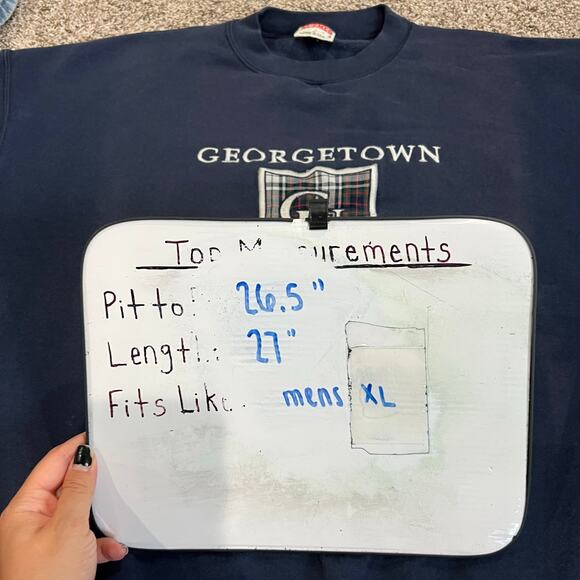 GEORGETOWN
G
Top Measurements
Pit to 26.5"
Length: 27"
Fits Like mens XL